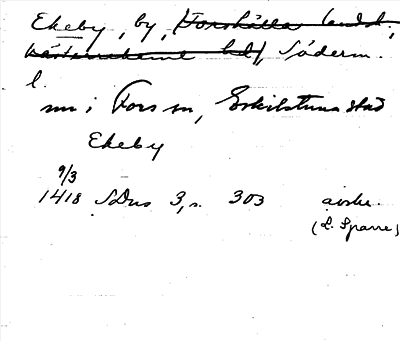 Ekeby, by, (Torshälla landsk.,
Västerrekarne hd), Söderm.
l.
nu i Fors sn, Eskilstuna stad
Ekeby
9/3
1418 SDns 3, s. 303 avskr.
(L. Sparre)